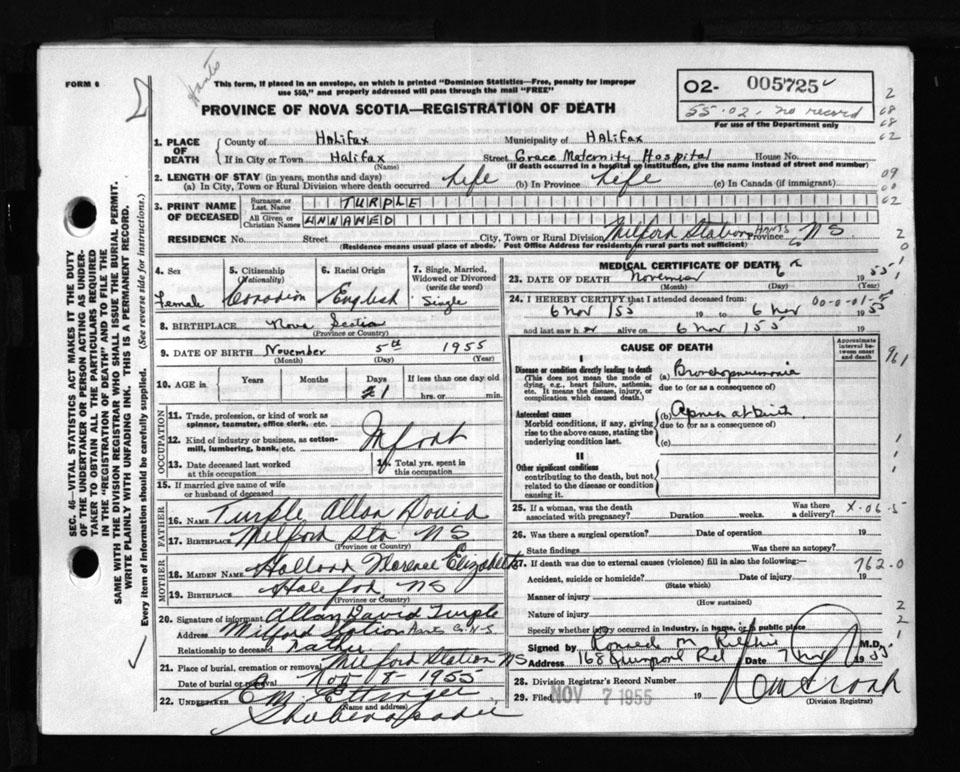 FORM 6
Hants
This form, if placed in an envelope, on which is printed "Dominion Statistics—Free, penalty for improper
use $50," and properly addressed will pass through the mail "FREE"
PROVINCE OF NOVA SCOTIA—REGISTRATION OF DEATH
02- 005725
55-02- no record
For use of the Department only
1. PLACE OF DEATH
County of Halifax Municipality of Halifax
If in City or Town Halifax Street Grace Maternity Hospital House No.
(Name) (If death occurred in a hospital or institution, give the name instead of street and number)
2. LENGTH OF STAY (in years, months and days)
(a) In City, Town or Rural Division where death occurred Life (b) In Province Life (c) In Canada (if immigrant)
3. PRINT NAME OF DECEASED
Surname or Last Name TURPLE
All Given or Christian Names UNNAMED
RESIDENCE No. Street City, Town or Rural Division Milford Station Hants Province NS
(Residence means usual place of abode. Post Office Address for residents in rural parts not sufficient)
4. Sex Female
5. Citizenship (Nationality) Canadian
6. Racial Origin English
7. Single, Married, Widowed or Divorced (write the word) Single
8. BIRTHPLACE Nova Scotia
(Province or Country)
9. DATE OF BIRTH November 5th 1955
(Month) (Day) (Year)
10. AGE in Years Months Days 1 If less than one day old
hrs. or min.
OCCUPATION
11. Trade, profession, or kind of work as
spinner, teamster, office clerk, etc. Infant
12. Kind of industry or business, as cotton-
mill, lumbering, bank, etc.
13. Date deceased last worked
at this occupation
14. Total yrs. spent in
this occupation
15. If married give name of wife
or husband of deceased
FATHER
16. NAME Turple Allan David
17. BIRTHPLACE Milford Sta NS
(Province or Country)
MOTHER
18. MAIDEN NAME Holland Florence Elizabeth
19. BIRTHPLACE Halifax NS
(Province or Country)
20. Signature of informant Allan David Turple
Address Milford Station Hants Co. N-S
Relationship to deceased Father
21. Place of burial, cremation or removal Milford Station NS
Date of burial or removal Nov 8 1955
22. UNDERTAKER E M Ettinger
(Name and address)
Shubenacadie
MEDICAL CERTIFICATE OF DEATH
23. DATE OF DEATH November 6th 1955
(Month) (Day)
24. I HEREBY CERTIFY that I attended deceased from: 00-0-01-5
6 Nov 155 19 to 6 Nov 1955
and last saw her alive on 6 Nov 155 19
CAUSE OF DEATH
Approximate interval between onset and death
I
Disease or condition directly leading to death
(This does not mean the mode of dying, e.g., heart failure, asthenia, etc. It means the disease, injury, or complication which caused death.)
(a) Bronchopneumonia
due to (or as a consequence of)
Antecedent causes
Morbid conditions, if any, giving rise to the above cause, stating the underlying condition last.
(b) Apnea at birth
due to (or as a consequence of)
(c)
II
Other significant conditions
contributing to the death, but not related to the disease or condition causing it.
25. If a woman, was the death associated with pregnancy? Duration weeks. Was there a delivery? X-06-5
26. Was there a surgical operation? Date of operation 19
State findings Was there an autopsy?
27. If death was due to external causes (violence) fill in also the following:— 762.0
Accident, suicide or homicide? Date of injury 19
(State which)
Manner of injury
(How sustained)
Nature of injury
Specify whether injury occurred in industry, in home, or in public place
Signed by Ronald M Ritchie M.D.
Address 168 Quinpool Rd Date 7 Nov 1955
28. Division Registrar's Record Number
29. Filed NOV 7 1955 19
(Division Registrar)
SEC. 46—VITAL STATISTICS ACT MAKES IT THE DUTY
OF THE UNDERTAKER OR PERSON ACTING AS UNDER-
TAKER TO OBTAIN ALL THE PARTICULARS REQUIRED
IN THE "REGISTRATION OF DEATH" AND TO FILE THE
SAME WITH THE DIVISION REGISTRAR WHO SHALL ISSUE THE BURIAL PERMIT.
WRITE PLAINLY WITH UNFADING INK. THIS IS A PERMANENT RECORD.
Every item of information should be carefully supplied. (See reverse side for instructions.)
2
08
08
02
09
00
02
2
0
1
961
1
1
2
2
1